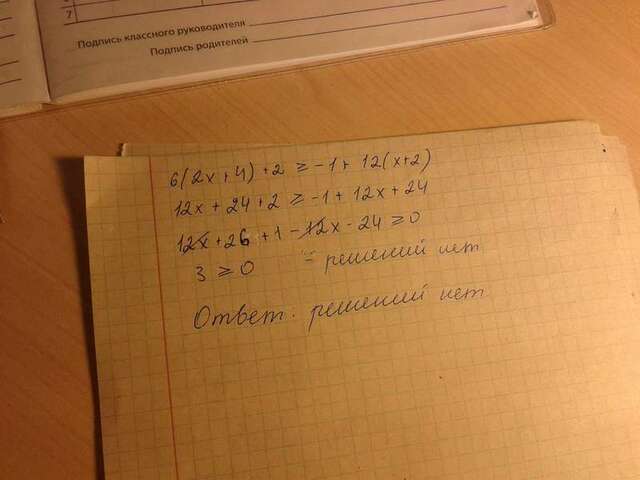 7
Подпись классного руководителя
Подпись родителей
6(2x+4)+2 ≥ -1+ 12(x+2)
12x + 24 + 2 ≥ -1 + 12x + 24
12x + 26 + 1 - 12x - 24 ≥ 0
3 ≥ 0 - решений нет
Ответ: решений нет